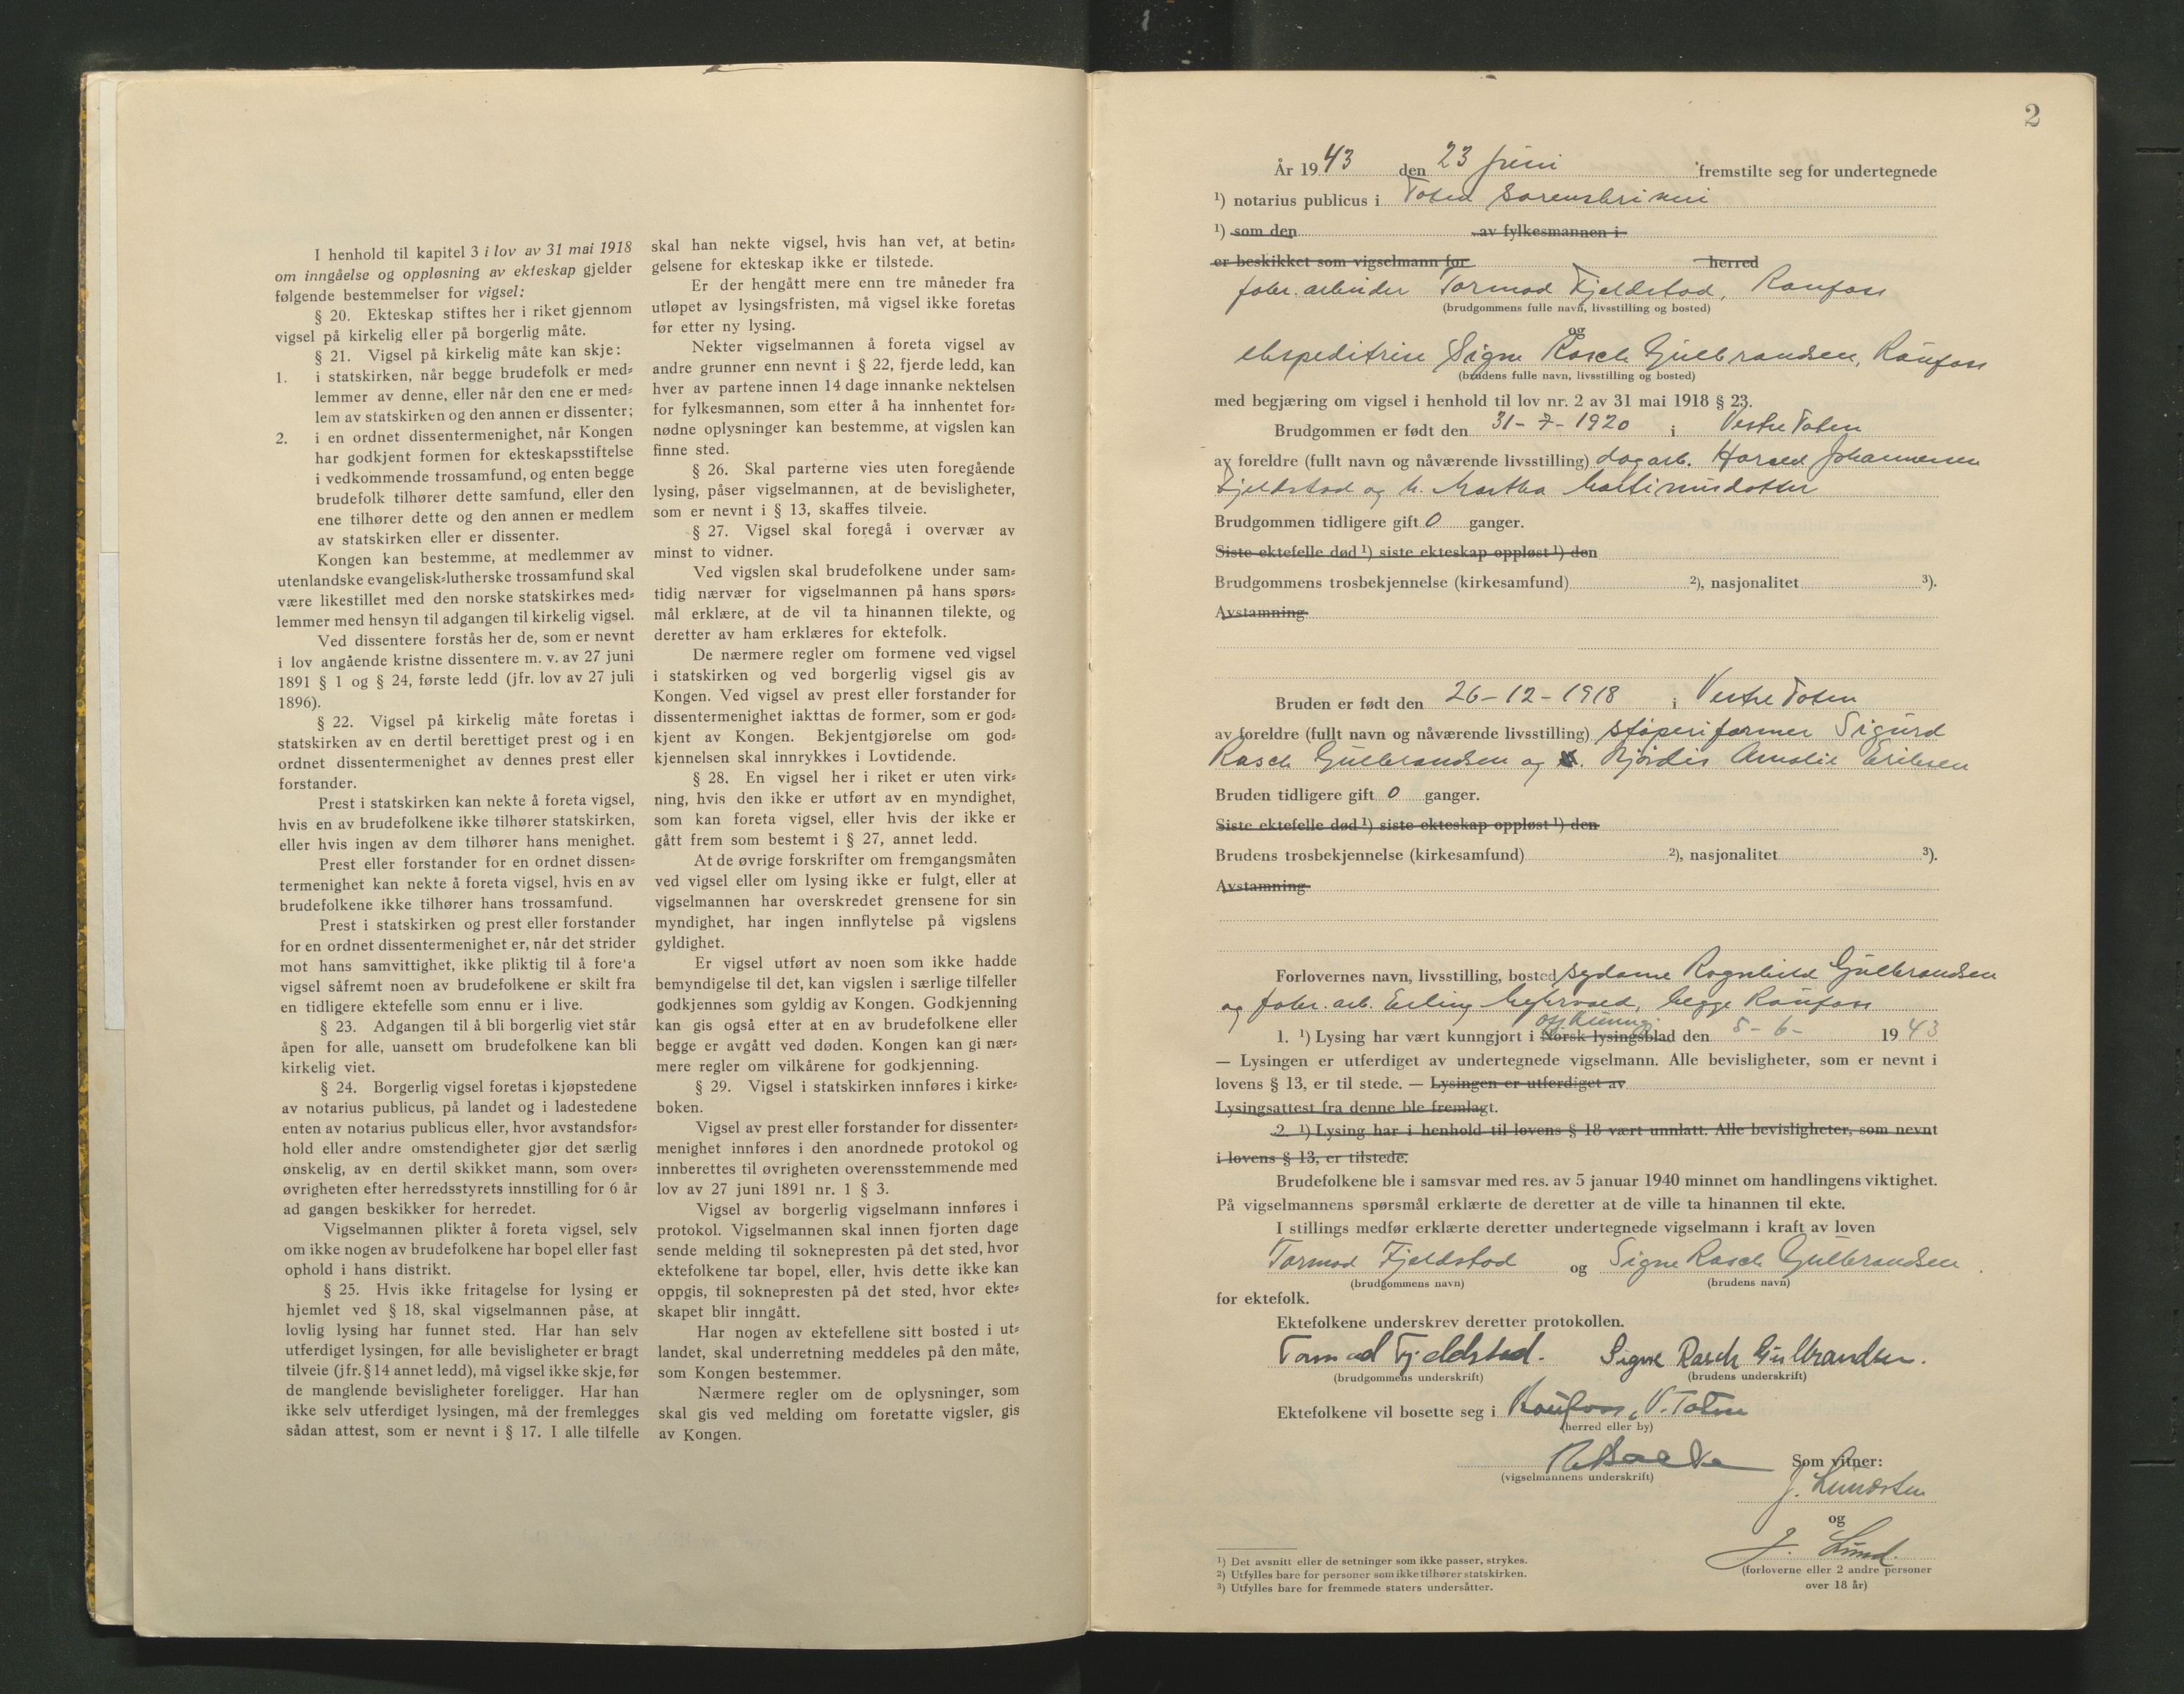 I henhold til kapitel 3 i lov av 31 mai 1918
om inngåelse og oppløsning av ekteskap gjelder
følgende bestemmelser for vigsel:
§ 20. Ekteskap stiftes her i riket gjennom
vigsel på kirkelig eller på borgerlig måte.
§ 21. Vigsel på kirkelig måte kan skje:
1. i statskirken, når begge brudefolk er med=
lemmer av denne, eller når den ene er med=
lem av statskirken og den annen er dissenter;
2. i en ordnet dissentermenighet, når Kongen
har godkjent formen for ekteskapsstiftelse
i vedkommende trossamfund, og enten begge
brudefolk tilhører dette samfund, eller den
ene tilhører dette og den annen er medlem
av statskirken eller er dissenter.
Kongen kan bestemme, at medlemmer av
utenlandske evangelisk=lutherske trossamfund skal
være likestillet med den norske statskirkes med=
lemmer med hensyn til adgangen til kirkelig vigsel.
Ved dissentere forstås her de, som er nevnt
i lov angående kristne dissentere m. v. av 27 juni
1891 § 1 og § 24, første ledd (jfr. lov av 27 juli
1896).
§ 22. Vigsel på kirkelig måte foretas i
statskirken av en dertil berettiget prest og i en
ordnet dissentermenighet av dennes prest eller
forstander.
Prest i statskirken kan nekte å foreta vigsel,
hvis en av brudefolkene ikke tilhører statskirken,
eller hvis ingen av dem tilhører hans menighet.
Prest eller forstander for en ordnet dissen=
termenighet kan nekte å foreta vigsel, hvis en av
brudefolkene ikke tilhører hans trossamfund.
Prest i statskirken og prest eller forstander
for en ordnet dissentermenighet er, når det strider
mot hans samvittighet, ikke pliktig til å fore'a
vigsel såfremt noen av brudefolkene er skilt fra
en tidligere ektefelle som ennu er i live.
§ 23. Adgangen til å bli borgerlig viet står
åpen for alle, uansett om brudefolkene kan bli
kirkelig viet.
§ 24. Borgerlig vigsel foretas i kjøpstedene
av notarius publicus, på landet og i ladestedene
enten av notarius publicus eller, hvor avstandsfor=
hold eller andre omstendigheter gjør det særlig
ønskelig, av en dertil skikket mann, som over=
øvrigheten efter herredsstyrets innstilling for 6 år
ad gangen beskikker for herredet.
Vigselmannen plikter å foreta vigsel, selv
om ikke nogen av brudefolkene har bopel eller fast
ophold i hans distrikt.
§ 25. Hvis ikke fritagelse for lysing er
hjemlet ved § 18, skal vigselmannen påse, at
lovlig lysing har funnet sted. Har han selv
utferdiget lysingen, før alle bevisligheter er bragt
tilveie (jfr. § 14 annet ledd), må vigsel ikke skje, før
de manglende bevisligheter foreligger. Har han
ikke selv utferdiget lysingen, må der fremlegges
sådan attest, som er nevnt i § 17. I alle tilfelle
skal han nekte vigsel, hvis han vet, at betin=
gelsene for ekteskap ikke er tilstede.
Er der hengått mere enn tre måneder fra
utløpet av lysingsfristen, må vigsel ikke foretas
før etter ny lysing.
Nekter vigselmannen å foreta vigsel av
andre grunner enn nevnt i § 22, fjerde ledd, kan
hver av partene innen 14 dage innanke nektelsen
for fylkesmannen, som etter å ha innhentet for=
nødne oplysninger kan bestemme, at vigslen kan
finne sted.
§ 26. Skal parterne vies uten foregående
lysing, påser vigselmannen, at de bevisligheter,
som er nevnt i § 13, skaffes tilveie.
§ 27. Vigsel skal foregå i overvær av
minst to vidner.
Ved vigslen skal brudefolkene under sam=
tidig nærvær for vigselmannen på hans spørs=
mål erklære, at de vil ta hinannen tilekte, og
deretter av ham erklæres for ektefolk.
De nærmere regler om formene ved vigsel
i statskirken og ved borgerlig vigsel gis av
Kongen. Ved vigsel av prest eller forstander for
dissentermenighet iakttas de former, som er god=
kjent av Kongen. Bekjentgjørelse om god=
kjennelsen skal innrykkes i Lovtidende.
§ 28. En vigsel her i riket er uten virk=
ning, hvis den ikke er utført av en myndighet,
som kan foreta vigsel, eller hvis der ikke er
gått frem som bestemt i § 27, annet ledd.
At de øvrige forskrifter om fremgangsmåten
ved vigsel eller om lysing ikke er fulgt, eller at
vigselmannen har overskredet grensene for sin
myndighet, har ingen innflytelse på vigslens
gyldighet.
Er vigsel utført av noen som ikke hadde
bemyndigelse til det, kan vigslen i særlige tilfeller
godkjennes som gyldig av Kongen. Godkjenning
kan gis også etter at en av brudefolkene eller
begge er avgått ved døden. Kongen kan gi nær=
mere regler om vilkårene for godkjenning.
§ 29. Vigsel i statskirken innføres i kirke=
boken.
Vigsel av prest eller forstander for dissenter=
menighet innføres i den anordnede protokol og
innberettes til øvrigheten overensstemmende med
lov av 27 juni 1891 nr. 1 § 3.
Vigsel av borgerlig vigselmann innføres i
protokol. Vigselmannen skal innen fjorten dage
sende melding til soknepresten på det sted, hvor
ektefolkene tar bopel, eller, hvis dette ikke kan
oppgis, til soknepresten på det sted, hvor ekte=
skapet blir inngått.
Har nogen av ektefellene sitt bosted i ut=
landet, skal underretning meddeles på den måte,
som Kongen bestemmer.
Nærmere regler om de oplysninger, som
skal gis ved melding om foretatte vigsler, gis
av Kongen.
2
År 1943 den 23 juni fremstilte seg for undertegnede
¹) notarius publicus i Toten sorenskriveri
¹) som den av fylkesmannen i
er beskikket som vigselmann for herred
fabr. arbeider Tormod Fjeldstad, Raufoss
(brudgommens fulle navn, livsstilling og bosted)
og
ekspeditrise Signe Rasch Gulbrandsen, Raufoss
(brudens fulle navn, livsstilling og bosted)
med begjæring om vigsel i henhold til lov nr. 2 av 31 mai 1918 § 23.
Brudgommen er født den 31-7-1920 i Vestre Toten
av foreldre (fullt navn og nåværende livsstilling) dagarb. Harald Johannesen
Fjeldstad og h. Martha Martinusdotter
Brudgommen tidligere gift 0 ganger.
Siste ektefelle død ¹) siste ekteskap oppløst ¹) den
Brudgommens trosbekjennelse (kirkesamfund) ²), nasjonalitet ³).
Avstamning
Bruden er født den 26-12-1918 i Vestre Toten
av foreldre (fullt navn og nåværende livsstilling) støperiformer Sigurd
Rasch Gulbrandsen og Hjørdis Amalie Eriksen
Bruden tidligere gift 0 ganger.
Siste ektefelle død ¹) siste ekteskap oppløst ¹) den
Brudens trosbekjennelse (kirkesamfund) ²), nasjonalitet ³).
Avstamning
Forlovernes navn, livsstilling, bosted sydame Ragnhild Gulbrandsen
og fabr. arb. Erling begge Raufoss
off. kunng.
1. ¹) Lysing har vært kunngjort i Norsk lysingsblad den 5-6- 1943
— Lysingen er utferdiget av undertegnede vigselmann. Alle bevisligheter, som er nevnt i
lovens § 13, er til stede. — Lysingen er utferdiget av
Lysingsattest fra denne ble fremlagt.
2. ¹) Lysing har i henhold til lovens § 18 vært unnlatt. Alle bevisligheter, som nevnt
i lovens § 13, er tilstede.
Brudefolkene ble i samsvar med res. av 5 januar 1940 minnet om handlingens viktighet.
På vigselmannens spørsmål erklærte de deretter at de ville ta hinannen til ekte.
I stillings medfør erklærte deretter undertegnede vigselmann i kraft av loven
Tormod Fjeldstad og Signe Rasch Gulbrandsen
(brudgommens navn) (brudens navn)
for ektefolk.
Ektefolkene underskrev deretter protokollen.
Tormod Fjeldstad. Signe Rasch Gulbrandsen.
(brudgommens underskrift) (brudens underskrift)
Ektefolkene vil bosette seg i Raufoss, V. Toten
(herred eller by)
(vigselmannens underskrift)
Som vitner:
J.
og
J. Lund.
(forloverne eller 2 andre personer
over 18 år)
¹) Det avsnitt eller de setninger som ikke passer, strykes.
²) Utfylles bare for personer som ikke tilhører statskirken.
³) Utfylles bare for fremmede staters undersåtter.